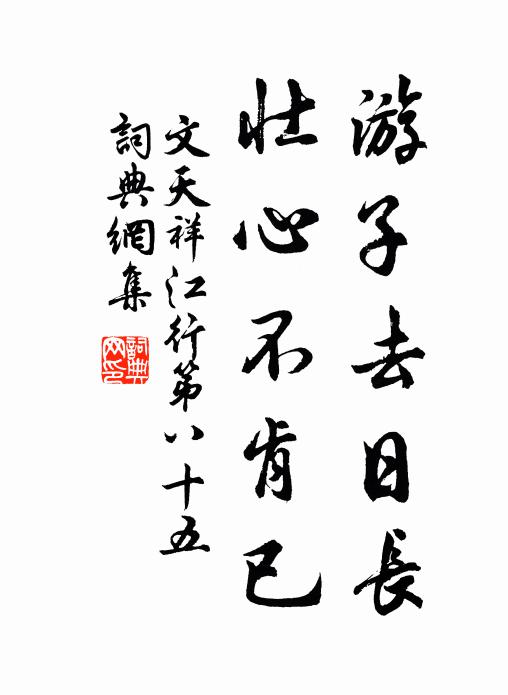 游子去日長
壯心不肯已
文天祥江行第八十五
詞典網集
詞典網印